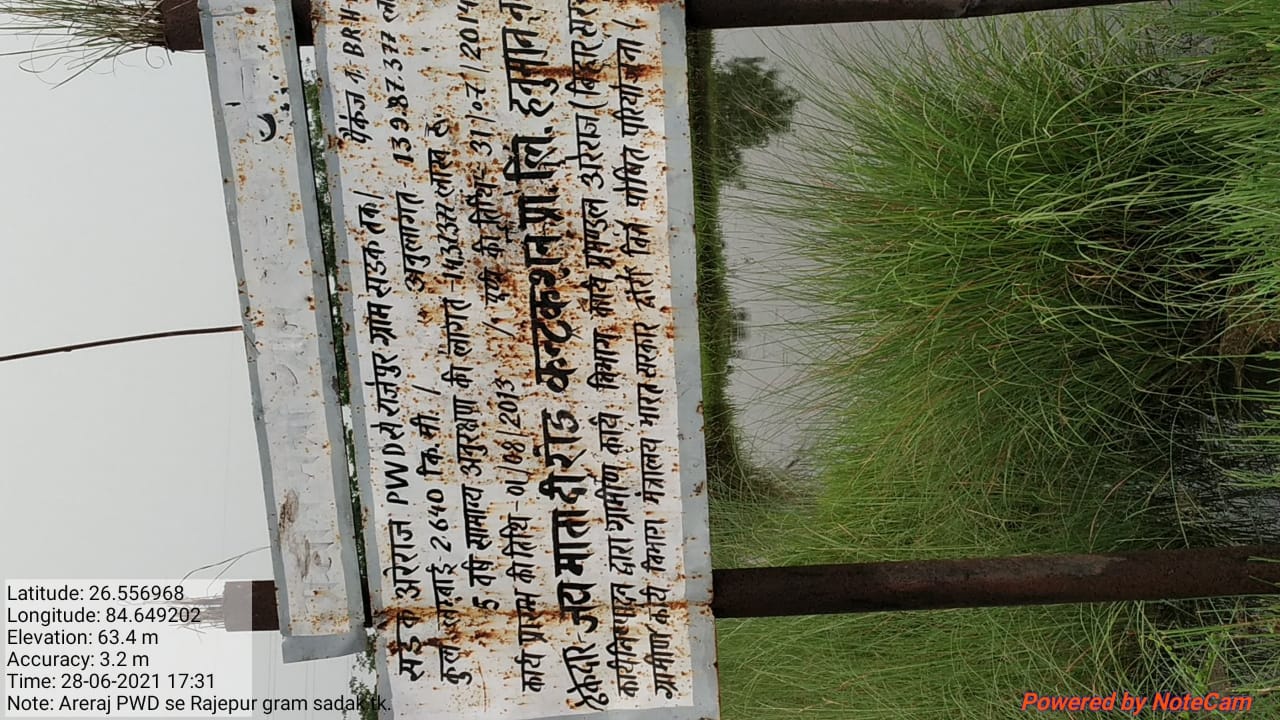 सड़क अरेराज PWD से राजेपुर ग्राम सड़क तक।
पैकेज नं. BRH
कुल लम्बाई- 2.640 कि.मी. / अनुलागत 139.87377
5 वर्ष सामान्य अनुरक्षण की लागत - लाख रु॰
कार्य प्रारम्भ की तिथि - 01/08/2013 पूर्ण की तिथि:- 31/07/2014
ठेकेदार- जय माता दी रोड कन्ट्रकशन प्रा. लि. हनुमान
कार्यान्वयन द्वारा ग्रामीण कार्य विभाग कार्य प्रमण्डल अरेराज (बिहार
ग्रामीण कार्य विभाग मंत्रालय भारत सरकार द्वारा वित्त पोषित परियोजना।
Latitude: 26.556968
Longitude: 84.649202
Elevation: 63.4 m
Accuracy: 3.2 m
Time: 28-06-2021 17:31
Note: Areraj PWD se Rajepur gram sadak tk.
Powered by NoteCam